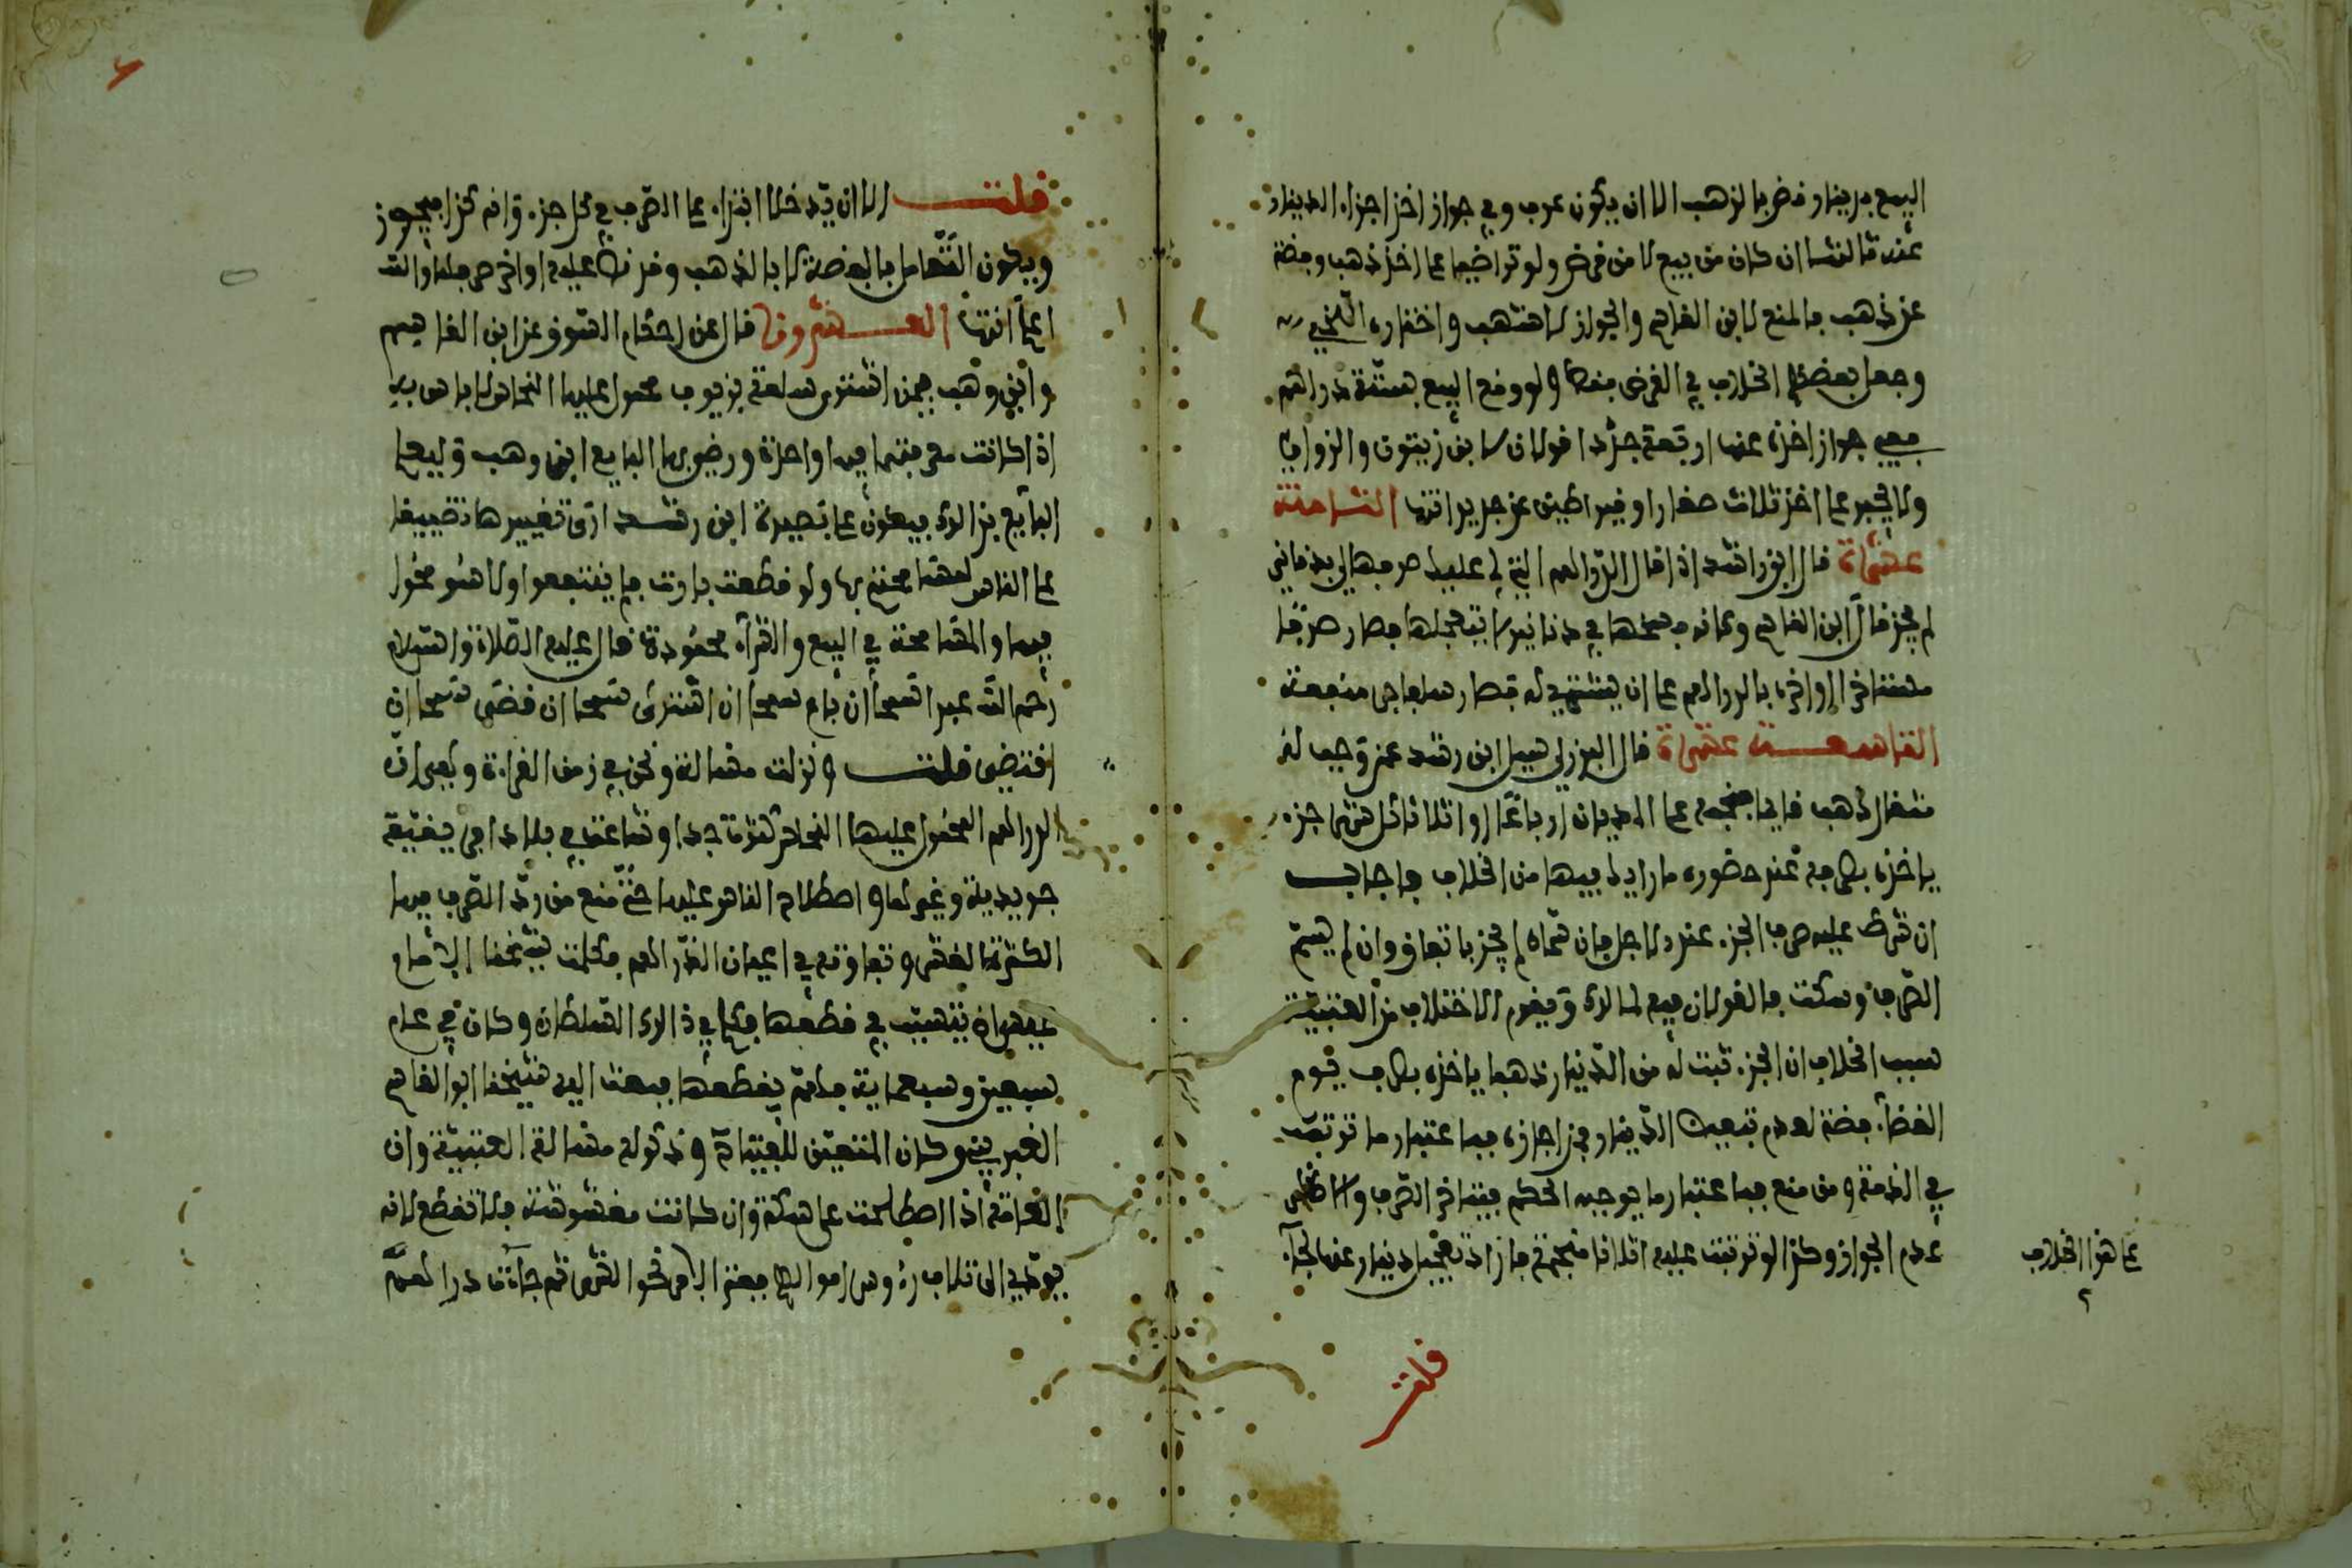 البيع بدينار وقضى بالذهب الا ان يكون عرف وفي جواز اخذ اجزاء الدينار
عنه ثالثها ان كان من بيع لا من قرض ولو تراضيا على اخذ ذهب وفضة
عن ذهب فالمنع لابن القاسم والجواز لاشهب واختاره اللخمي
وجعل بعضهم الخلاف في القرض مفضا ولو وقع البيع بستة دراهم
ففي جواز اخذه عنها اربعة جدد اقولان لابن زيتون والزواوي
ولا يجبر على اخذ ثلاث صغار او قيراطين عن جديد انتهى الثامنة
عشرة قال ابن راشد اذا قال الدراهم التي لي عليك صرفها لي بدنانير
لم يجز قال ابن القاسم وكانه فسخها في دنانير لا يتعجلها فصار صرفا
مستاخرا او اخره بالدراهم على ان يشتري له فصار سلفا جر منفعة
التاسعة عشرة قال البرزلي سيل ابن رشد عن وجب له
مثقال ذهب فاراد منجمه على المديان ارباعا او اثلاثا كل شهر جزء
ياخذه بصرفه عند حضوره ما رايك فيها من الخلاف فاجاب
ان شرط عليه صرف الجزء عند الاجل فان سماه لم يجز باتفاق وان لم يسم
الصرف وسكت فالقولان فيه لمالك ويقوم الاختلاف من العتبية
سبب الخلاف ان الجزء ثبت له من الدينار ذهبا ياخذه بصرف يوم
القضاء فضة لعدم تبعيض الدينار فمن اجازه فباعتبار ما ترتب
في الذمة ومن منع فباعتبار ما يوجبه الحكم فيتاخر الصرف والاظهر
عدم الجواز وكذا لو ترتبت عليه اثلاثا منجمة فاراد تعجيل دينار عنها لجاء
على هذا الخلاف
قلت
قلت الا ان يدخلا ابتداء على الصرف في كل جزء وانه كذا فيجوز
ويكون التعامل بالفضة لا بالذهب وقد نص عليه في اواخر صرفها والله
اعلم انتهى العشرون قال عن احكام السوق عن ابن القاسم
وابن وهب فيمن اشترى سلعة بزيوف محمول عليها النحاس لا باس به
اذا كانت معرفتهما فيها واحدة ورضي بها البايع ابن وهب وليعلم
البايع بذالك فيكون على بصيرة ابن رشد ارى تغييرها تضييقا
على الناس لمسامحتهم بها ولو قطعت بارت فلم ينتفعوا ولا شيء محرم
فيها والمسامحة في البيع والشراء محمودة قال عليه الصلاة والسلام
رحم الله عبدا سمحا ان باع سمحا ان اشترى سمحا ان قضى سمحا ان
اقتضى قلت ونزلت مسالة ونحن في زمن القراءة وهي ان
الدراهم المحمول عليها النحاس كثرت جدا وشاعت في بلاد افريقية
جريدية وغيرها واصطلاح الناس عليها حتى منع من رد الصرف فيها
لكثرة الغش وتفاوته في اعيان الدراهم فكلمت شيخنا الامام
عسى ان يتسبب في قطعها فكلم في ذالك السلطان وكان في عام
سبعين وسبعماية فاهتم بقطعها فبعث اليه شيخنا ابو القاسم
الغبريني وكان المتعين للفتيا وذكر له مسالة العتبية وان
العامة اذا اصطلحت على سكة وان كانت مغشوشة فلا تقطع لانه
يودي الى تلاف رءوس اموالهم فبقي الامر نحو الشهر ثم جاءت دراهم